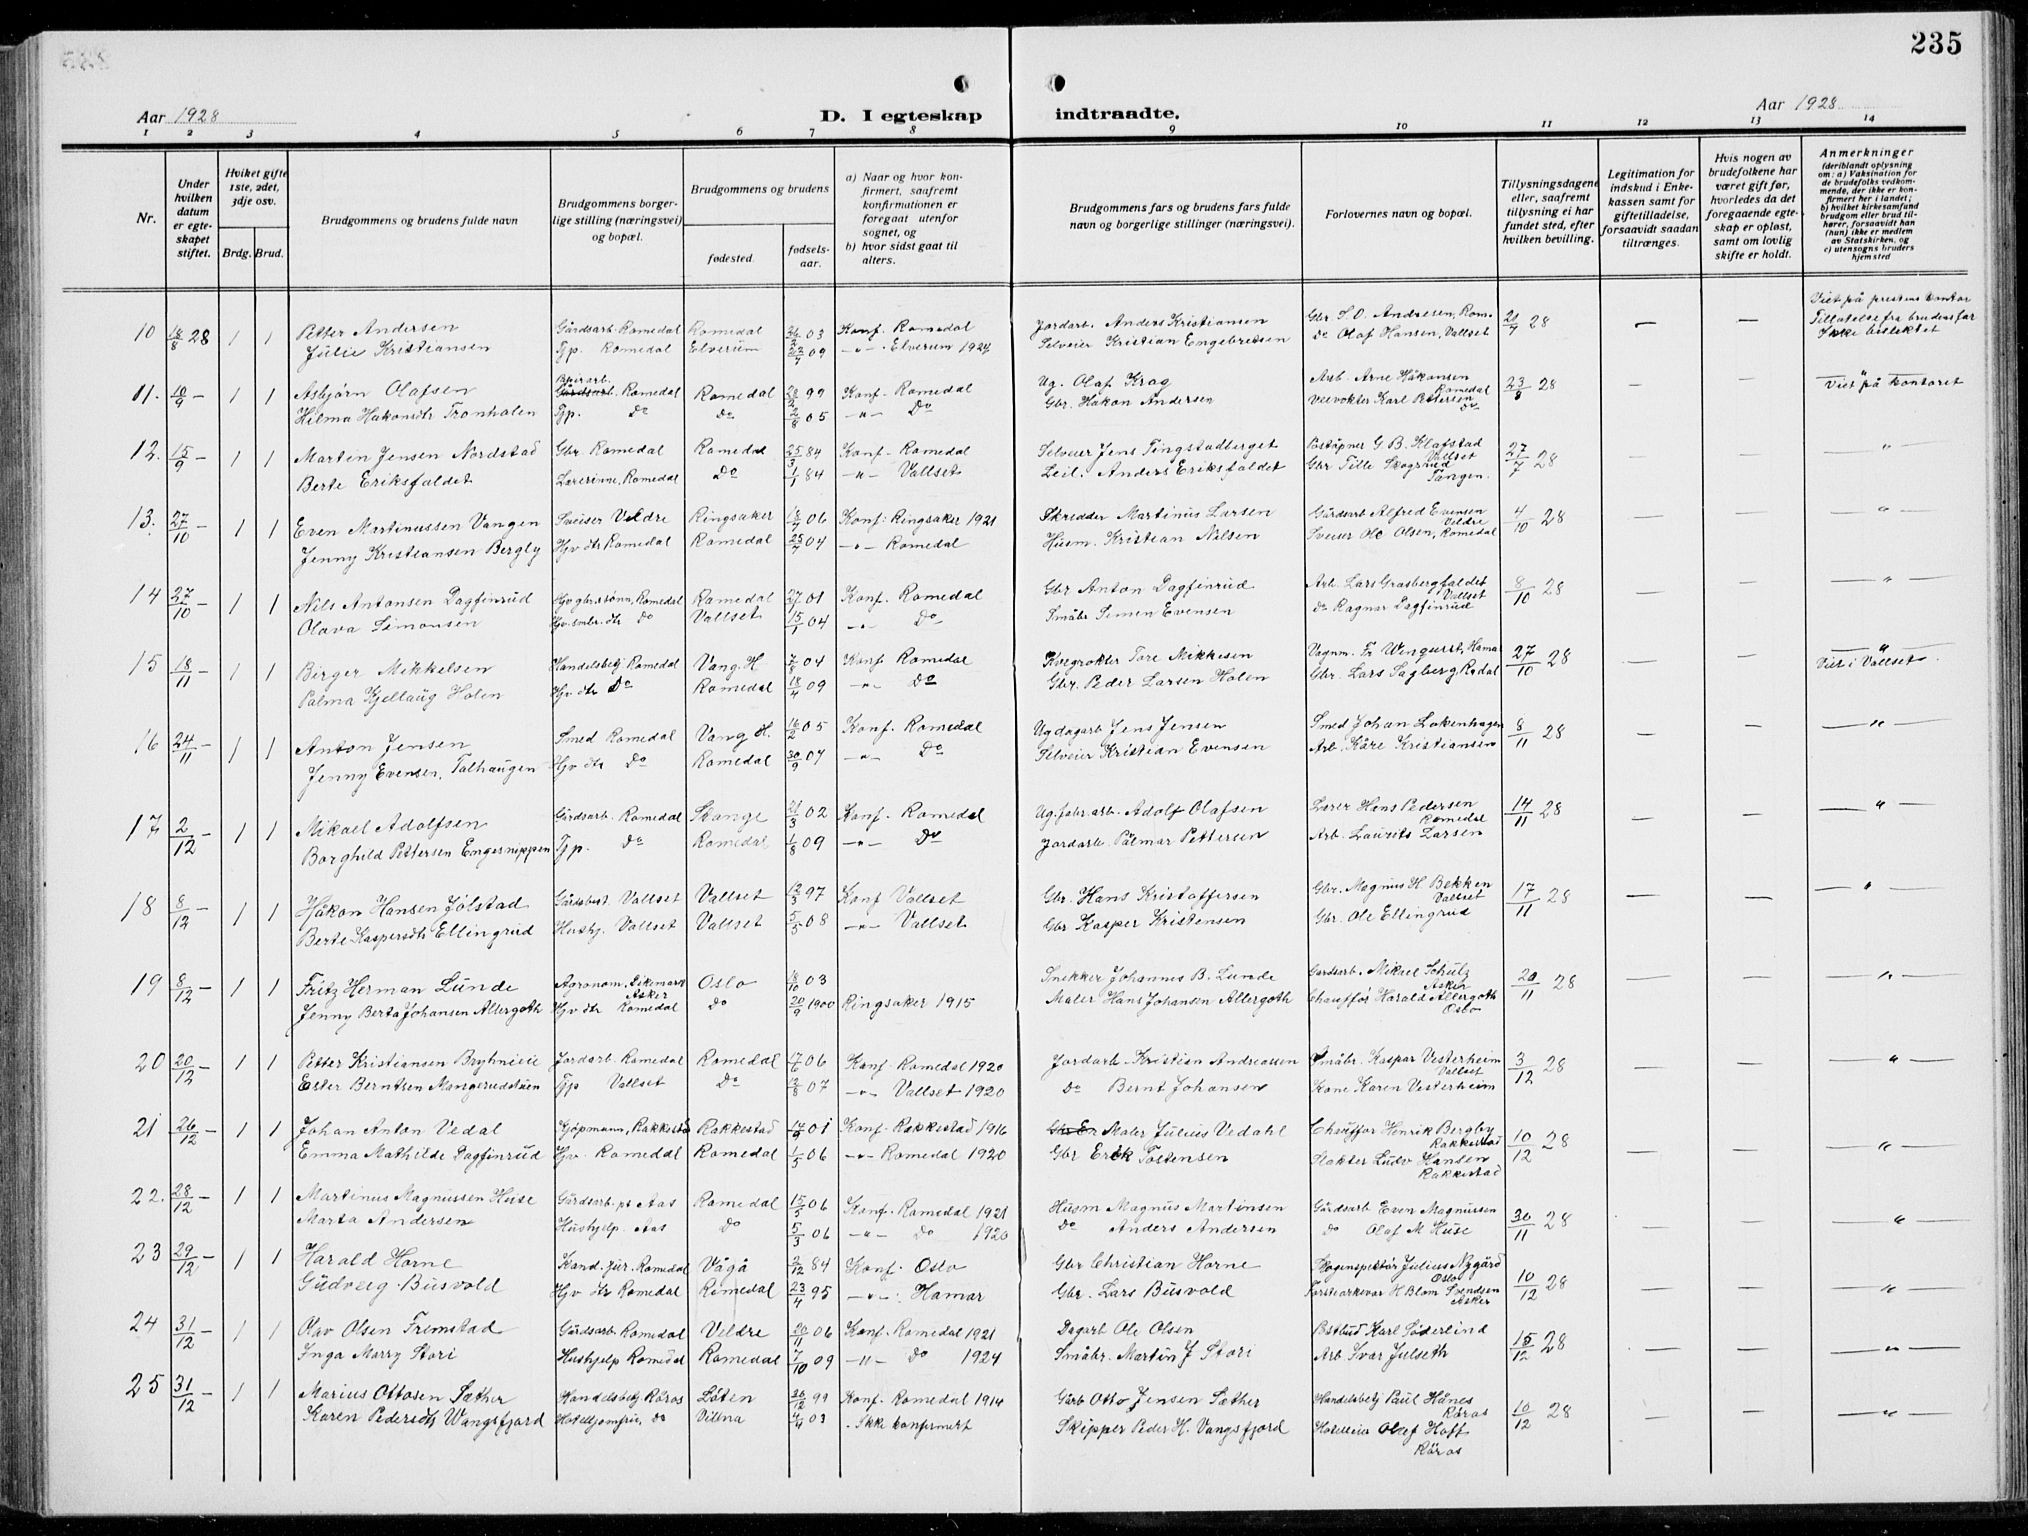 235
Aar 1928
D. I egteskap indtraadte.
Aar 1928
1 2 3 4 5 6 7 8 9 10 11 12 13 14
Nr.
Under hvilken datum er egteskapet stiftet.
Hviket gifte 1ste, 2det, 3dje osv.
Brdg. Brud.
Brudgommens og brudens fulde navn
Brudgommens borgerlige stilling (næringsvei) og bopæl.
Brudgommens og brudens
fødested.
fødselsaar.
a) Naar og hvor konfirmert, saafremt konfirmationen er foregaat utenfor sognet, og
b) hvor sidst gaat til alters.
Brudgommens fars og brudens fars fulde navn og borgerlige stillinger (næringsvei).
Forlovernes navn og bopæl.
Tillysningsdagene eller, saafremt tillysning ei har fundet sted, efter hvilken bevilling.
Legitimation for indskud i Enkekassen samt for giftetilladelse, forsaavidt saadan tiltrænges.
Hvis nogen av brudefolkene har været gift før, hvorledes da det foregaaende egteskap er opløst, samt om lovlig skifte er holdt.
Anmerkninger (deriblandt oplysning om: a) Vaksination for de brudefolks vedkommende, der ikke er konfirmert her i landet; b) hvilket kirkesamfund brudgom eller brud tilhører, forsaavidt han (hun) ikke er medlem av Statskirken, og c) utensogns bruders hjemsted
10 18/8 28 1 1 Petter Andersen Gårdsarb. Romedal Romedal 03 Konf. Romedal Jordarb. Anders Kristiansen Gbr. S.O. Andresen, Rom. 21/7 28 — — Viet på prestens kontor
Julie Kristiansen Tjp. Romedal Elverum 09 —"— Elverum 1924 Selveier Kristian Engebretsen do Olaf Hansen, Vallset Tillatelse fra brudens far
Ikke beslektet
11. 10/9 — 1 1 Asbjørn Olafsen Papirarb. Romedal Romedal 99 Konf. Romedal Ug. Olaf Krog Arb. Arne Håkonsen Romedal 23/8 28 — — Viet på kontoret
Hilma Håkonsdtr Tronholen Tjp. Do Do 2/8 05 —"— Do Gbr. Håkon Andersen Veivokter Karl Pettersen Do
12. 15/9 — 1 1 Martin Jensen Nordstad Gbr. Romedal Romedal 25/3 84 Konf. Romedal Selveier Jens Tingstadberget Poståpner G.B. Klafstad Vallset 27/7 28 — — "
Berte Eriksfaldet Lærerinne, Romedal Do 84 —"— Vallset Leil. Anders Eriksfaldet Gbr Tille Skogsrud Tangen.
13. 27/10 — 1 1 Even Martinussen Vangen Sveiser Veldre Ringsaker 18/7 06 Konf. Ringsaker 1921 Skredder Martinus Larsen Gårdsarb Alfred Evensen Veldre 4/10 28 — — "
Jenny Kristiansen Bergly Hjv dtr Romedal Romedal 25/7 04 —"— Romedal Husm. Kristian Nilsen Sveiser Ole Olsen, Romedal
14 27/10 — 1 1 Nils Antonsen Dagfinrud Hjv gbr.sønn, Romedal Romedal 01 Konf. Romedal Gbr Anton Dagfinrud Arb. Lars Grasbergfaldet Vallset 8/10 28 — — "
Olava Simonsen Hjv. smbr. dtr Do Vallset 15/1 04 —"— Do Småbr Simen Evensen do Ragnar Dagfinrud
15 18/11 — 1 1 Birger Mikkelsen Handelsbetj Romedal Vang. H 7/8 04 Konf. Romedal Kvegrøkter Tore Mikkelsen Vagnm. Fr Wengurst, Hamar 27/10 28 — — "
Palma Kjellaug Holen Hjv dtr Do Romedal 18/4 09 —"— Do Gbr. Peder Larsen Holen Gbr. Lars Sagberg, Rodal Viet i Vallset.
16 24/11 — 1 1 Anton Jensen Smed Romedal Vang H. 16/2 05 Konf. Romedal Ug dagarb Jens Jensen Smed Johan Løkenhagen 8/11 28 — — "
Jenny Evensen, Talhaugen Hjv dtr Do Romedal 30/9 07 —"— Do Selveier Kristian Evensen Arb. Kåre Kristiansen
17 2/12 — 1 1 Mikael Adolfsen Gårdsarb. Romedal Stange 21/3 02 Konf. Romedal Ug. fabr. arb. Adolf Olafsen Lærer Hans Pedersen Romedal 14/11 28 — — "
Borghild Pettersen Engesnippen Tjp. Do Romedal 1/8 09 —"— Do Jordarb. Palmar Pettersen Arb. Laurits Larsen
18 8/12 — 1 1 Håkon Hansen Jølstad Gårdsbest. Vallset Vallset 97 Konf Vallset Gbr. Hans Kristoffersen Gbr. Magnus H. Bekken Vallset 17/11 28 — — "
Berte Kaspersdtr Ellingrud Hushj. Vallset Vallset 5/5 08 —"— Vallset Gbr Kasper Kristensen Gbr. Ole Ellingrud
19 8/12 — 1 1 Fritz Herman Lunde Agronom, Dikemark Asker Oslo 18/10 03 Snekker Johannes B. Lunde Gardsarb. Mikael Schulz Asker 20/11 28 — — "
Jenny Berta Johansen Allergoth Hjv dtr Romedal Do 20/9 1900 Ringsaker 1915 Maler Hans Johansen Allergoth Chauffør Harald Allergoth Oslo
20 20/12 — 1 1 Petter Kristiansen Bryhnieie Jordarb. Romedal Romedal 06 Konf. Romedal 1920 Jordarb. Kristian Andreassen Småbr. Kaspar Vesterheim Vallset 3/12 28 — — "
Ester Berntsen Mangerudstuen Tjp Vallset Do 07 —"— Vallset 1920 Do Bernt Johansen Kone Karen Vesterheim
21 26/12 — 1 1 Johan Anton Vedal Kjøpmann, Rakkestad Rakkestad 01 Konf. Rakkestad 1916 Maler Julius Vedahl Chauffør Henrik Bergby Rakkestad 10/12 28 — — "
Emma Mathilde Dagfinrud Hjv. Romedal Romedal 1/5 06 —"— Romedal 1920 Gbr Erik Tostensen Slakter Ludv Hansen Rakkestad
22. 28/12 — 1 1 Martinus Magnussen Huse Gårdsarb. pt Aas Romedal 15/5 06 Konf. Romedal 1921 Husm Magnus Martinsen Gårdsarb Even Magnussen 30/11 28 — — "
Marta Andersen Hushjelp. Aas Do 5/3 06 —"— Do 1920 Do Anders Andersen do Olaf M Huse
23 29/12 — 1 1 Harald Horne Kand. jur. Romedal Vågå 2/12 84 Konf. Oslo Gbr Christian Horne Skoginspektør Julius Nygård Oslo 10/12 28 — — "
Gudveig Busvold Hjv dtr Romedal Romedal 23/4 95 —"— Hamar Gbr. Lars Busvold Førstearkivar H Blom Svendsen Asker
24 31/12 — 1 1 Olav Olsen Fremstad Gårdsarb. Romedal Veldre 20/11 06 Konf. Romedal 1921 Dagarb Ole Olsen Postbud Karl Søderlind 15/12 28 — — "
Inga Marry Stori Hushjelp Romedal Romedal 7/10 09 —"— Do 1924 Småbr. Martin J Stori Arb Ivar Julseth
25 31/12 1 1 Marius Ottosen Sæther Handelsbetj Röros Löten 26/12 99 Konf. Romedal 1914 Gårb Otto Jensen Sæther Handelsbetj Paul Hånes Röros 10/12 28 — — "
Karen Pedersdtr Wangsfjord Hotelljomfru, do Vikna 4/4 03 Ikke konfirmert Skipper Peder H. Vangsfjord Hotelleier Olaf Hoft Röros